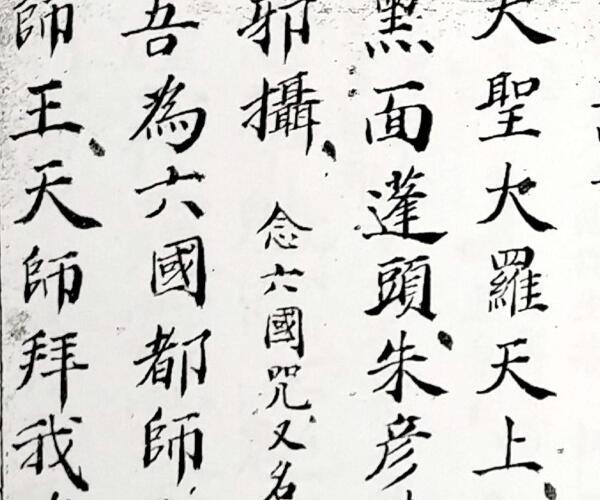 大聖大羅天上
黑面蓬頭朱彦
邪攝 念六國咒又名
吾為六國都師
師王天師拜我